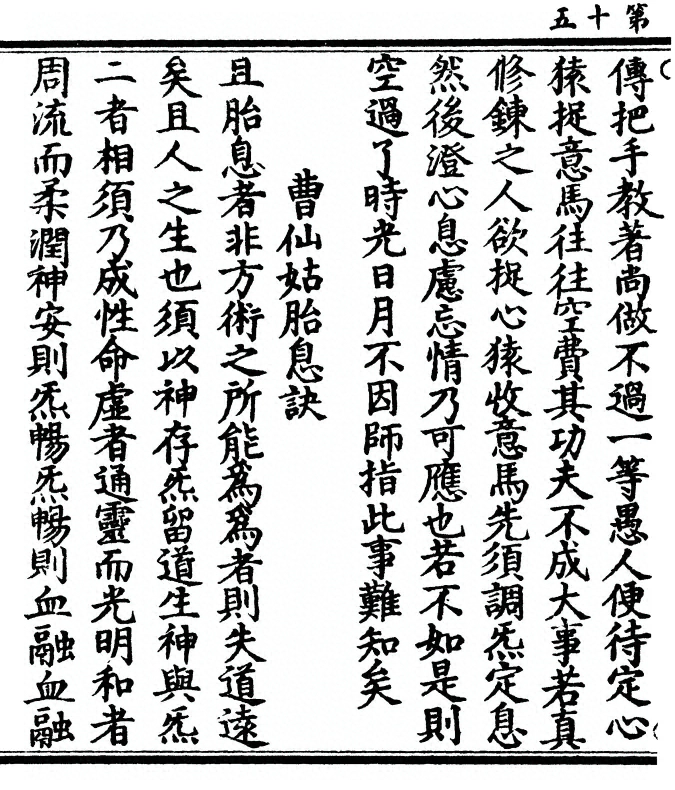 第十五
傳把手教著尚做不過一等愚人便待定心
猿捉意馬往往空費其功夫不成大事若真
修鍊之人欲捉心猿收意馬先須調炁定息
然後澄心息慮忘情乃可應也若不如是則
空過了時光日月不因師指此事難知矣
曹仙姑胎息訣
且胎息者非方術之所能為為者則失道遠
矣且人之生也須以神存炁留道生神與炁
二者相須乃成性命虛者通靈而光明和者
周流而柔潤神安則炁暢炁暢則血融血融